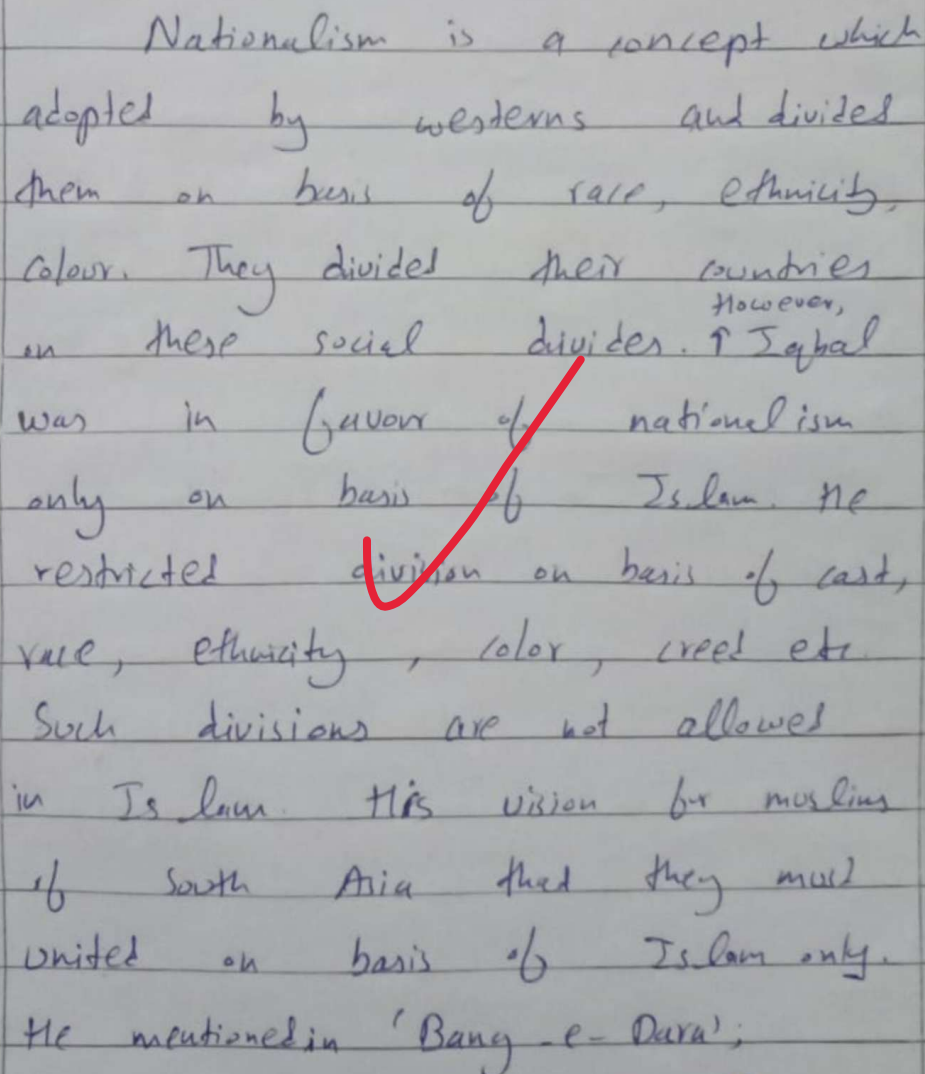 Nationalism is a concept which
adopted by westerns and divided
them on basis of race, ethnicity,
colour. They divided their countries
However,
on these social divides. ↑ Iqbal
was in favour of nationalism
only on basis of Islam. He
restricted division on basis of cast,
race, ethnicity, color, creed etc
Such divisions are not allowed
in Islam. His vision for muslims
of South Asia that they must
united on basis of Islam only.
He mentioned in 'Bang-e-Dara';